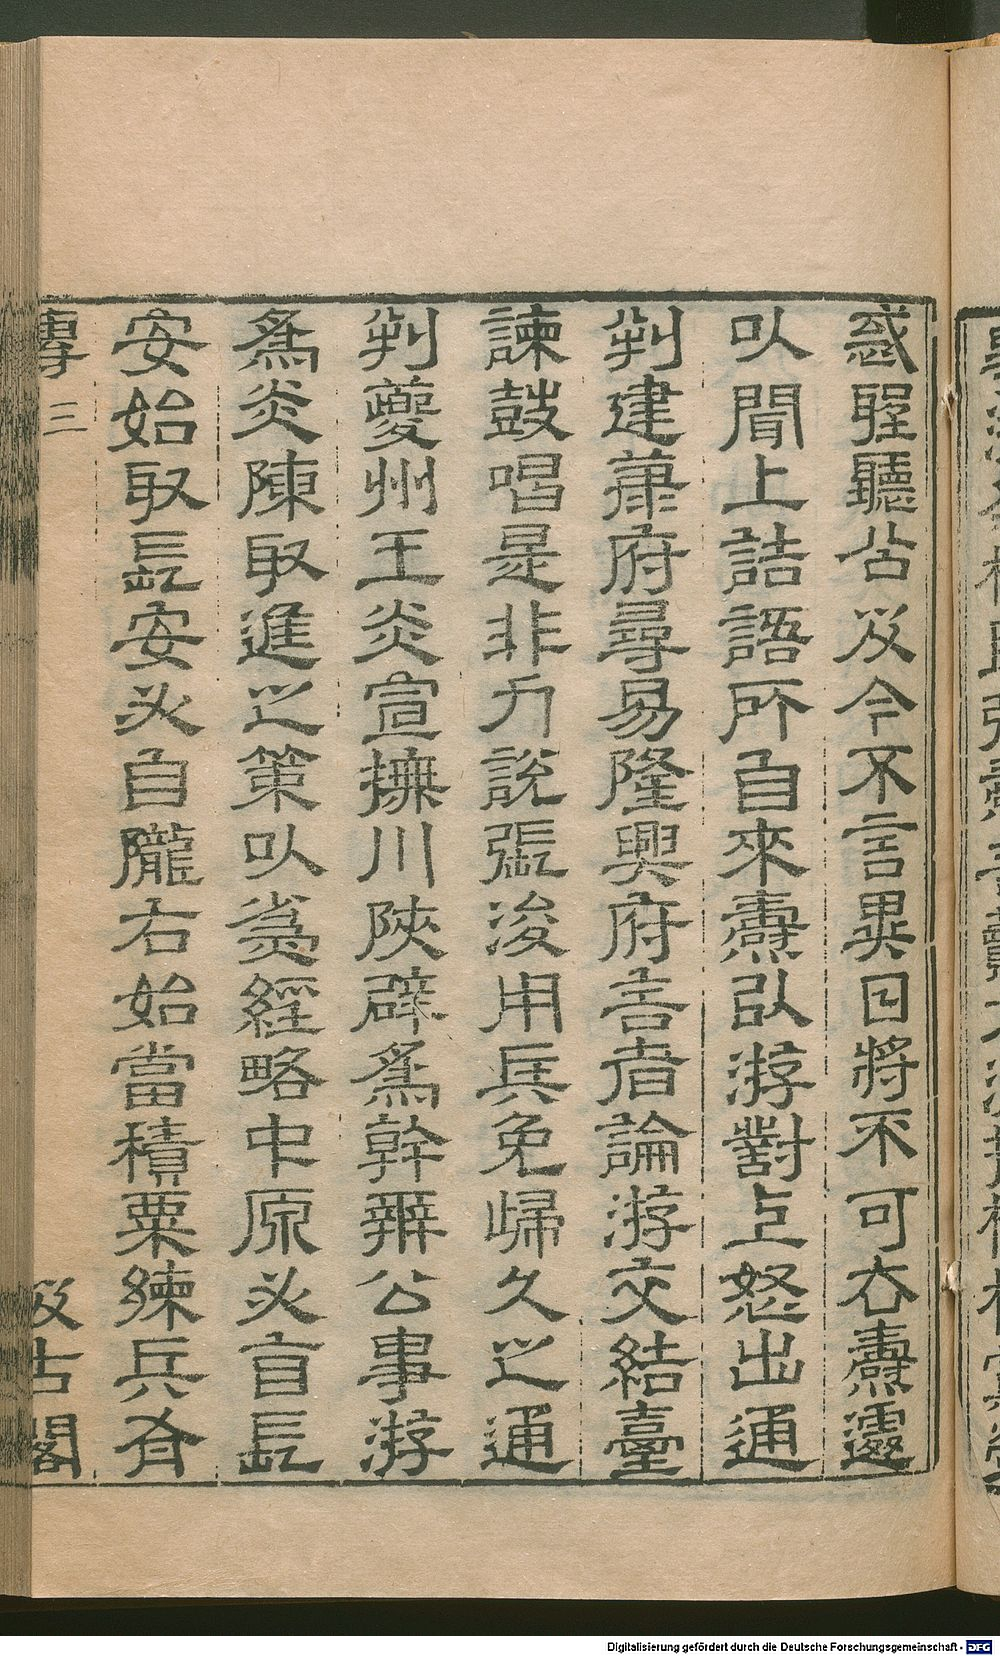 惑聖聽公及今不言異日將不可杏燾遽
以聞上詰語所自來燾以游對上怒出通
判建康府尋易隆興府言者論游交結臺
諫鼓唱是非力說張浚用兵免歸久之通
判夔州王炎宣撫川陝辟為幹辦公事游
為炎陳取進之策以為經略中原必自長
安始取長安必自隴右始當積粟練兵有
傳 三 汲古閣
Digitalisierung gefördert durch die Deutsche Forschungsgemeinschaft - DFG